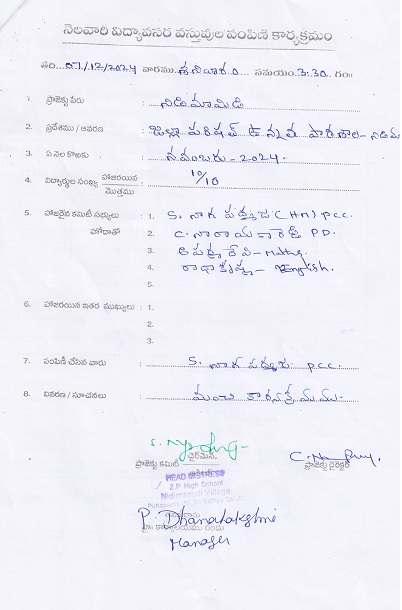 నెలవారి విద్యావసర వస్తువుల పంపిణి కార్యక్రమం
తేది...07/12/2024 వారము శనివారం... సమయం.3:30. గం॥
1. ప్రాజెక్టు పేరు : నిడిమామిడి
2. ప్రదేశము / ఆవరణ : జిల్లా పరిషత్ ఉన్నత పాఠశాల - నిడిమా
3. ఏ నెల కొఱకు : నవంబరు - 2024.
4. విద్యార్థుల సంఖ్య హాజరయిన / మొత్తము : 10/10
5. హాజరైన కమిటీ సభ్యులు : 1. S. నాగ పద్మజ (HM) PCC.
హోదాతో 2. C. నారాయణరెడ్డి PD.
3. అపర్ణా దేవి - Maths.
4. రాధాకృష్ణ - English.
5.
6. హాజరయిన ఇతర ముఖ్యులు : 1.
2.
3.
7. పంపిణీ చేసిన వారు : S. నాగ పద్మజ PCC.
8. వివరణ / సూచనలు : మంచి కార్యక్రమము.
ప్రాజెక్టు కమిటీ ఛైర్మెన్ ప్రాజెక్టు డైరెక్టర్
HEAD MISTRESS
Z.P. High School
Nidimamidi Village,
P. Dhanalakshmi
Manager